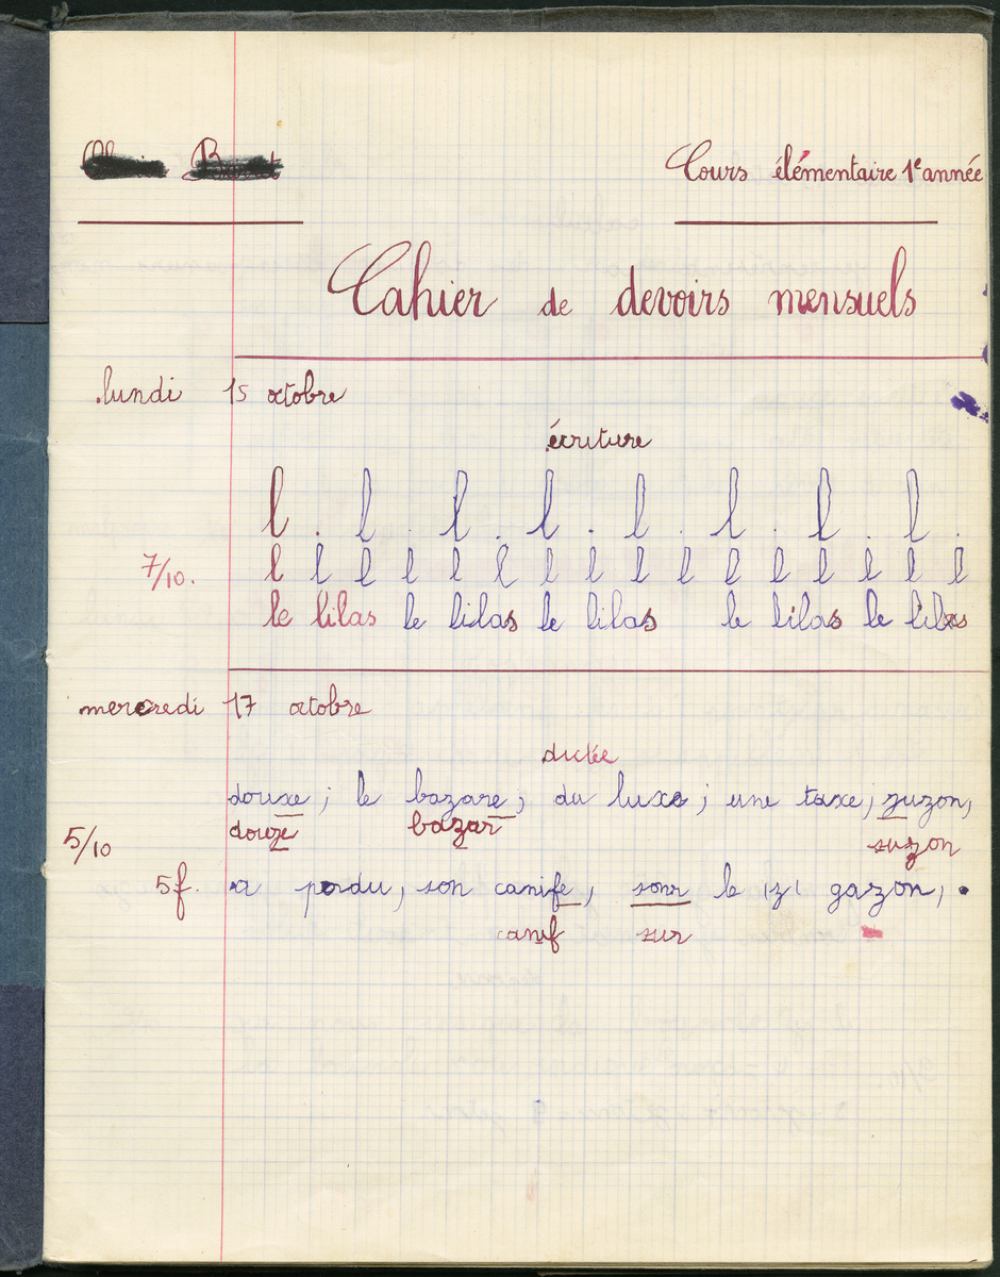 Cours élémentaire 1e année
Cahier de devoirs mensuels
lundi 15 octobre
écriture
l . l . l . l . l . l . l . l .
7/10. l l l l l l l l l l l l l l l l
le lilas le lilas le lilas le lilas le lilas
mercredi 17 octobre
dictée
douxe ; le bazare ; du luxe ; une taxe ; zuzon,
douze bazar suzon
5/10
5f. a perdu, son canife, sour le gazon, .
canif sur